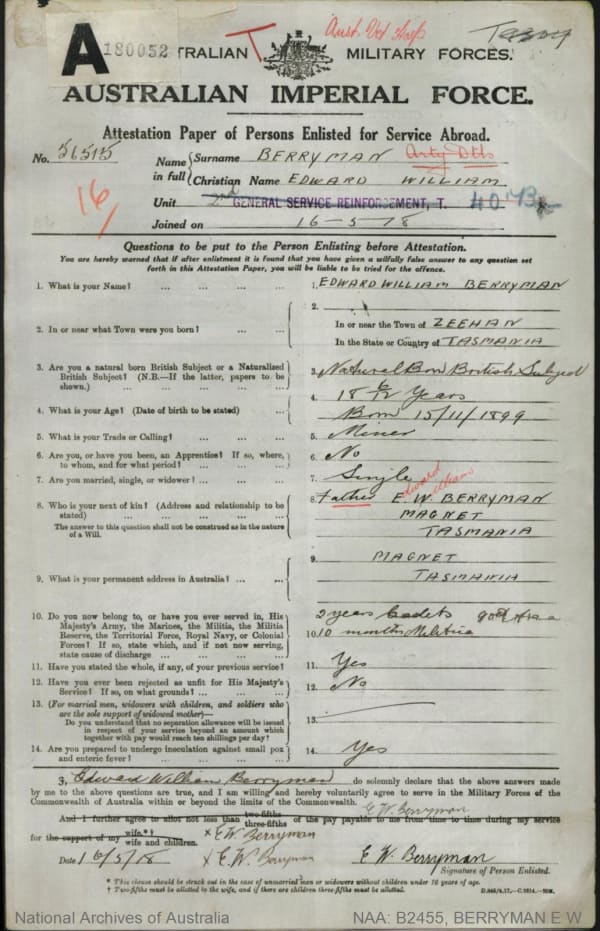 A 180052
AUSTRALIAN MILITARY FORCES.
AUSTRALIAN IMPERIAL FORCE.
Attestation Paper of Persons Enlisted for Service Abroad.
No. 56515
Name in full
Surname BERRYMAN
Christian Name EDWARD WILLIAM
16
Unit 2nd GENERAL SERVICE REINFORCEMENT, T.
Joined on 16-5-18
Questions to be put to the Person Enlisting before Attestation.
You are hereby warned that if after enlistment it is found that you have given a wilfully false answer to any question set
forth in this Attestation Paper, you will be liable to be tried for the offence.
1. What is your Name? ... ... ... ... 1. EDWARD WILLIAM BERRYMAN
2. In or near what Town were you born? ... ... 2. In or near the Town of ZEEHAN
In the State or Country of TASMANIA
3. Are you a natural born British Subject or a Naturalized
British Subject? (N.B.—If the latter, papers to be
shown.) ... ... ... ... 3. Natural Born British Subject
4. What is your Age? (Date of birth to be stated) ... 4. 18 6/12 Years
Born 15/11/1899
5. What is your Trade or Calling? ... ... 5. Miner
6. Are you, or have you been, an Apprentice? If so, where,
to whom, and for what period? ... ... ... 6. No
7. Are you married, single, or widower? ... ... 7. Single
8. Who is your next of kin? (Address and relationship to be
stated) ... ... ... ... 8. Father E. W. BERRYMAN
Edward William
The answer to this question shall not be construed as in the nature
of a Will. MAGNET
TASMANIA
9. What is your permanent address in Australia? ... ... 9. MAGNET
TASMANIA
10. Do you now belong to, or have you ever served in, His
Majesty's Army, the Marines, the Militia, the Militia
Reserve, the Territorial Force, Royal Navy, or Colonial
Forces? If so, state which, and if not now serving,
state cause of discharge ... ... ... 10. 2 years Cadets 90th Area
10 months Militia
11. Have you stated the whole, if any, of your previous service? 11. Yes
12. Have you ever been rejected as unfit for His Majesty's
Service? If so, on what grounds? ... ... ... 12. No
13. (For married men, widowers with children, and soldiers who
are the sole support of widowed mother)—
Do you understand that no separation allowance will be issued
in respect of your service beyond an amount which
together with pay would reach ten shillings per day? 13.
14. Are you prepared to undergo inoculation against small pox
and enteric fever? ... ... ... ... 14. Yes
I, Edward William Berryman do solemnly declare that the above answers made
by me to the above questions are true, and I am willing and hereby voluntarily agree to serve in the Military Forces of the
Commonwealth of Australia within or beyond the limits of the Commonwealth.
E W Berryman
And I further agree to allot not less than two-fifths three-fifths of the pay payable to me from time to time during my service
for the support of my wife.*† wife and children. x E W Berryman
Date 16/5/18 x E W. Berryman E W. Berryman
Signature of Person Enlisted.
* This clause should be struck out in the case of unmarried men or widowers without children under 18 years of age.
† Two-fifths must be allotted by the wife, and if there are children three-fifths must be allotted.
National Archives of Australia NAA: B2455, BERRYMAN E W